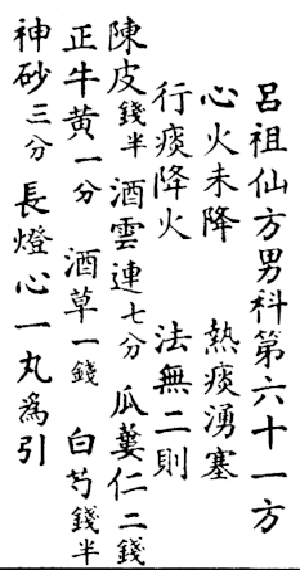 呂祖仙方男科第六十一方
心火未降 熱痰湧塞
行痰降火 法無二則
陳皮錢半 酒雲連七分 瓜蔞仁二錢
正牛黃一分 酒草一錢 白芍錢半
神砂三分 長燈心一丸為引